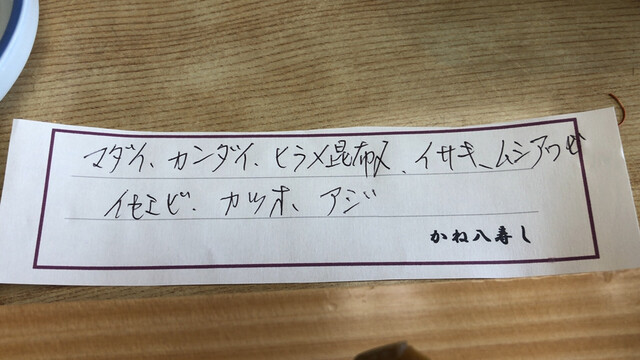 マダイ、カンダイ、ヒラメ昆布〆、イサキ、ムシアワビ
イセエビ、カツオ、アジ
かね八寿し